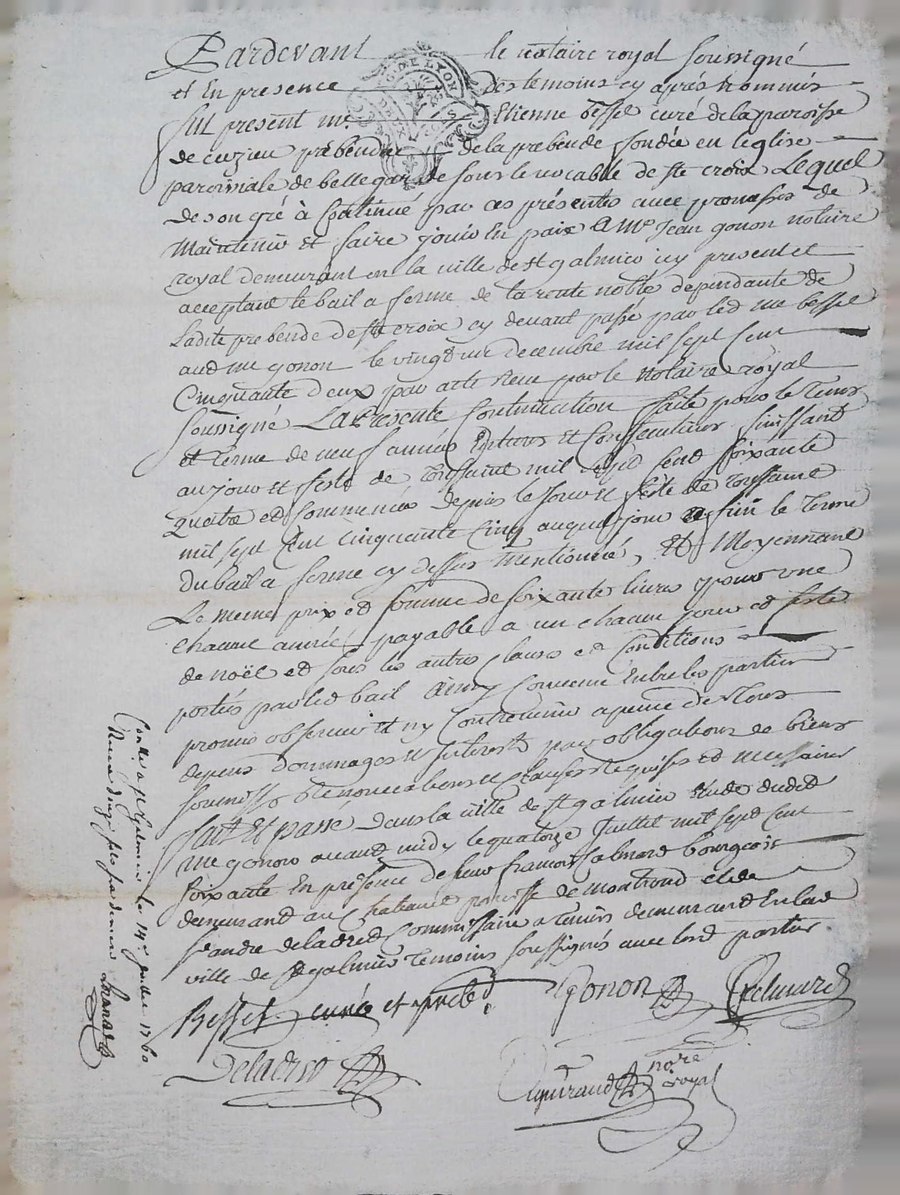 Pardevant le notaire royal soussigné
et En presence des temoins cy aprés nommés
fut present me. Etienne besset curé de la paroisse
de cuzieu prebendier de la prebende fondée en leglise
paroissiale de bellegarde sous le vocable de ste croix Lequel
de son gré à Continué par ces présentes avec promesses de
Maintenir et faire jouir En paix a Me Jean gonon notaire
royal demeurant en la ville de st galmier icy present et
acceptant le bail a ferme de la rente noble dependante de
Ladite prebende de ste croix cy devant passé par led me besset
aud me gonon le vingt decembre mil sept Cent
Cinquante deux par acte reçu par le notaire royal
soussigné La presente Continuation faite pour le tems
et terme de neuf années Entieres et Consecutives finissant
au jour et feste de Toussaint mil sept Cent soixante
quatre et Commencés depuis le jour et feste de Toussaint
mil sept Cent cinquante Cinq auquel jour a fini le terme
du bail a ferme cy dessus mentionné, Et Moyennant
Le meme prix et somme de soixante livres pour une
chacune année payable a un chacun jour et feste
de noël et sous les autres Clauses et Conditions
portées par led bail Ainsy Convenu Entre les parties
promis observer et ny Contrevenir a peine de tous
depens dommages et Interests par obligations de biens
soumissions renonciations et clauses requises et necessaires
fait Et passé dans la ville de st galmier Etude dudit
me gonon avant midy le quatorze Juillet mil sept Cent
soixante En presence de sieur francois bourgeois
demeurant au paroisse de montrond et de
sr andre Commissaire a terrier demeurant En lad
ville de st galmier Temoins soussignés avec lesd parties
Besset curé et prebd.
Gonon
notre
royal
Con.lé a st Galmier le 14e juillet 1760
Reçu douze sols